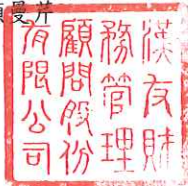 曼芹
漢友財
務管理
顧問股份
有限公司